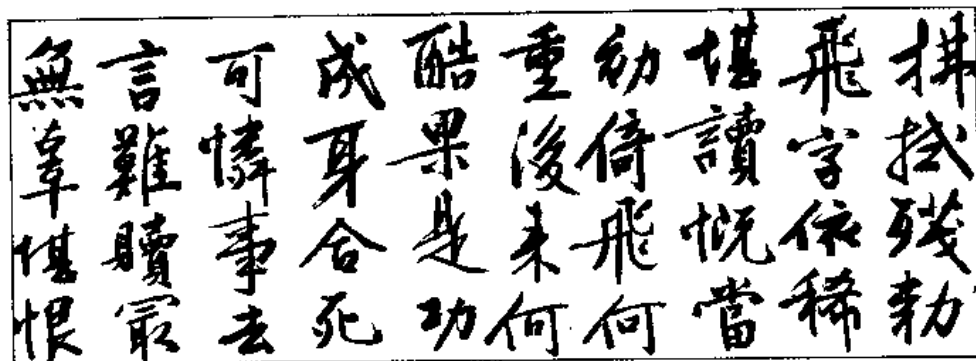 拂拭殘勑
飛字依稀
堪讀慨當
初倚飛何
重後来何
酷果是功
成身合死
可憐事去
言難贖冣
無辜堪恨